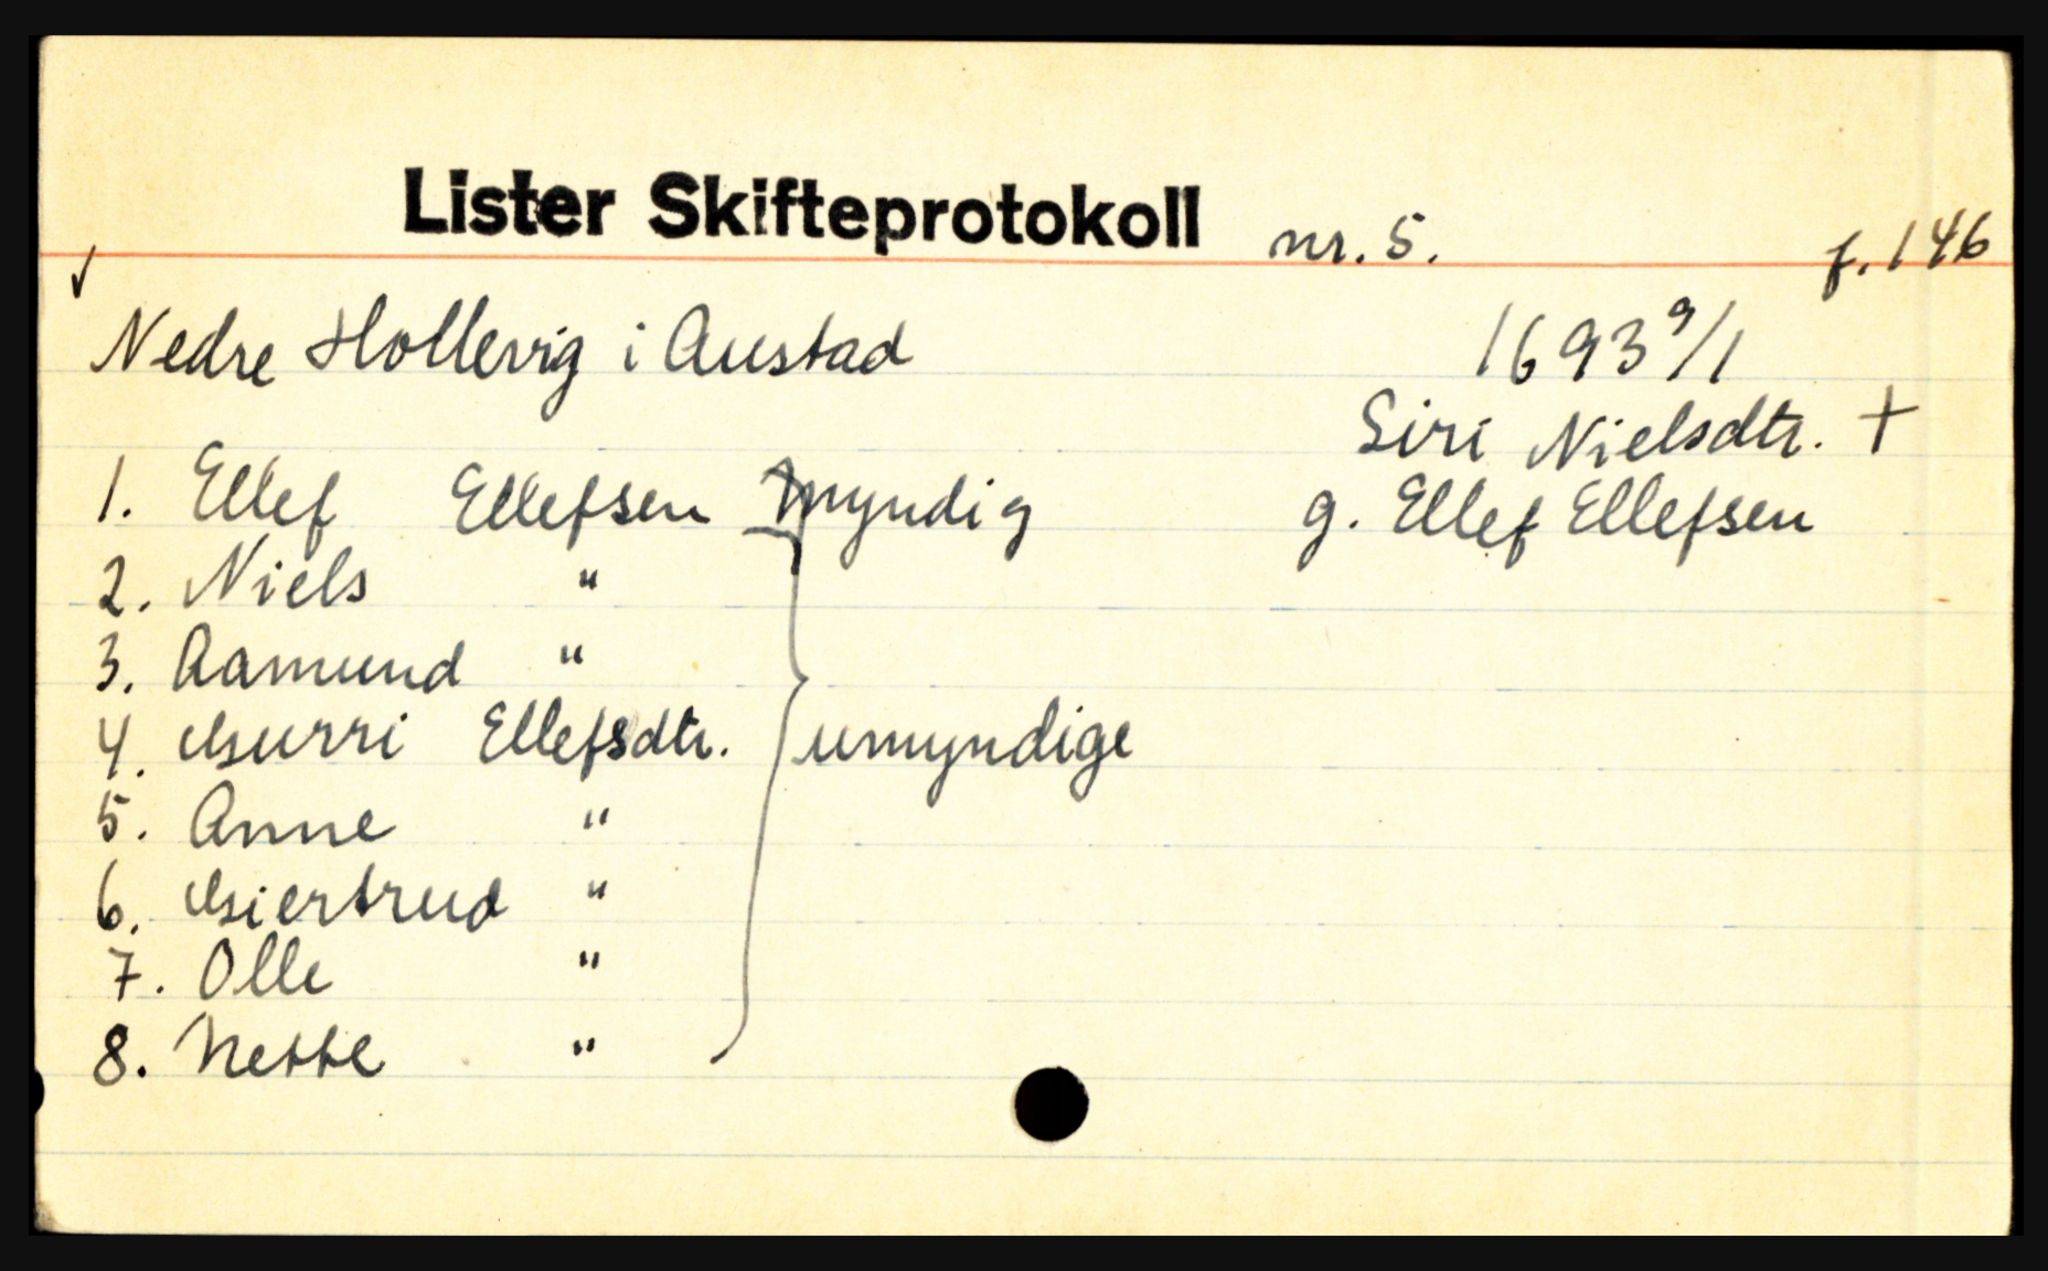 Lister Skifteprotokoll nr. 5. f. 146
✓
Nedre Hollevig i Austad 1693 9/1
Siri Nielsdtr. +
1. Ellef Ellefsen myndig g. Ellef Ellefsen
2. Niels "
3. Aamund "
4. Gurri Ellefsdtr. } umyndige
5. Anne "
6. Giertrud "
7. Olle "
8. Nette "